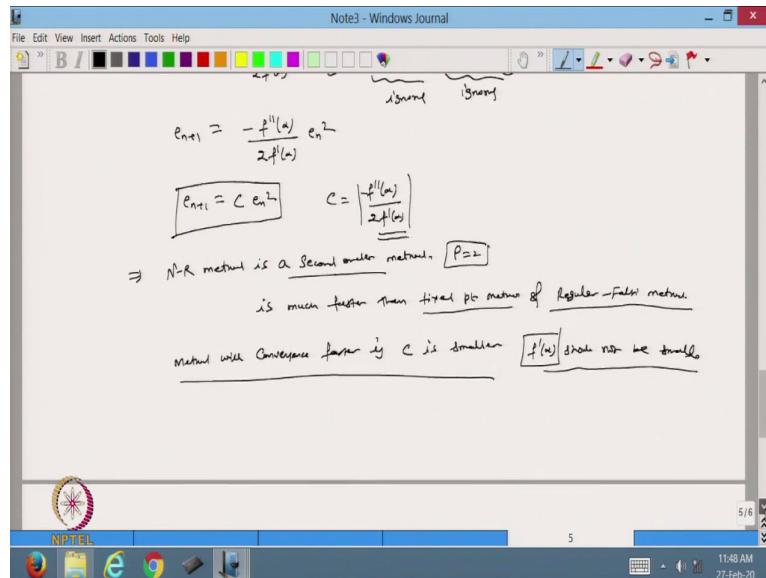 Note3 - Windows Journal
File Edit View Insert Actions Tools Help
2f'(α)
ignore ignore
e_{n+1} = -f''(α) / 2f'(α) e_n^2
e_{n+1} = C e_n^2 C = |-f''(α) / 2f'(α)|
⇒ N-R method is a second order method. P=2
is much faster than fixed pt method & Regular-Falsi method.
Method will converge faster if C is smaller f'(α) should not be small.
NPTEL
5/6
5
11:48 AM
27-Feb-20